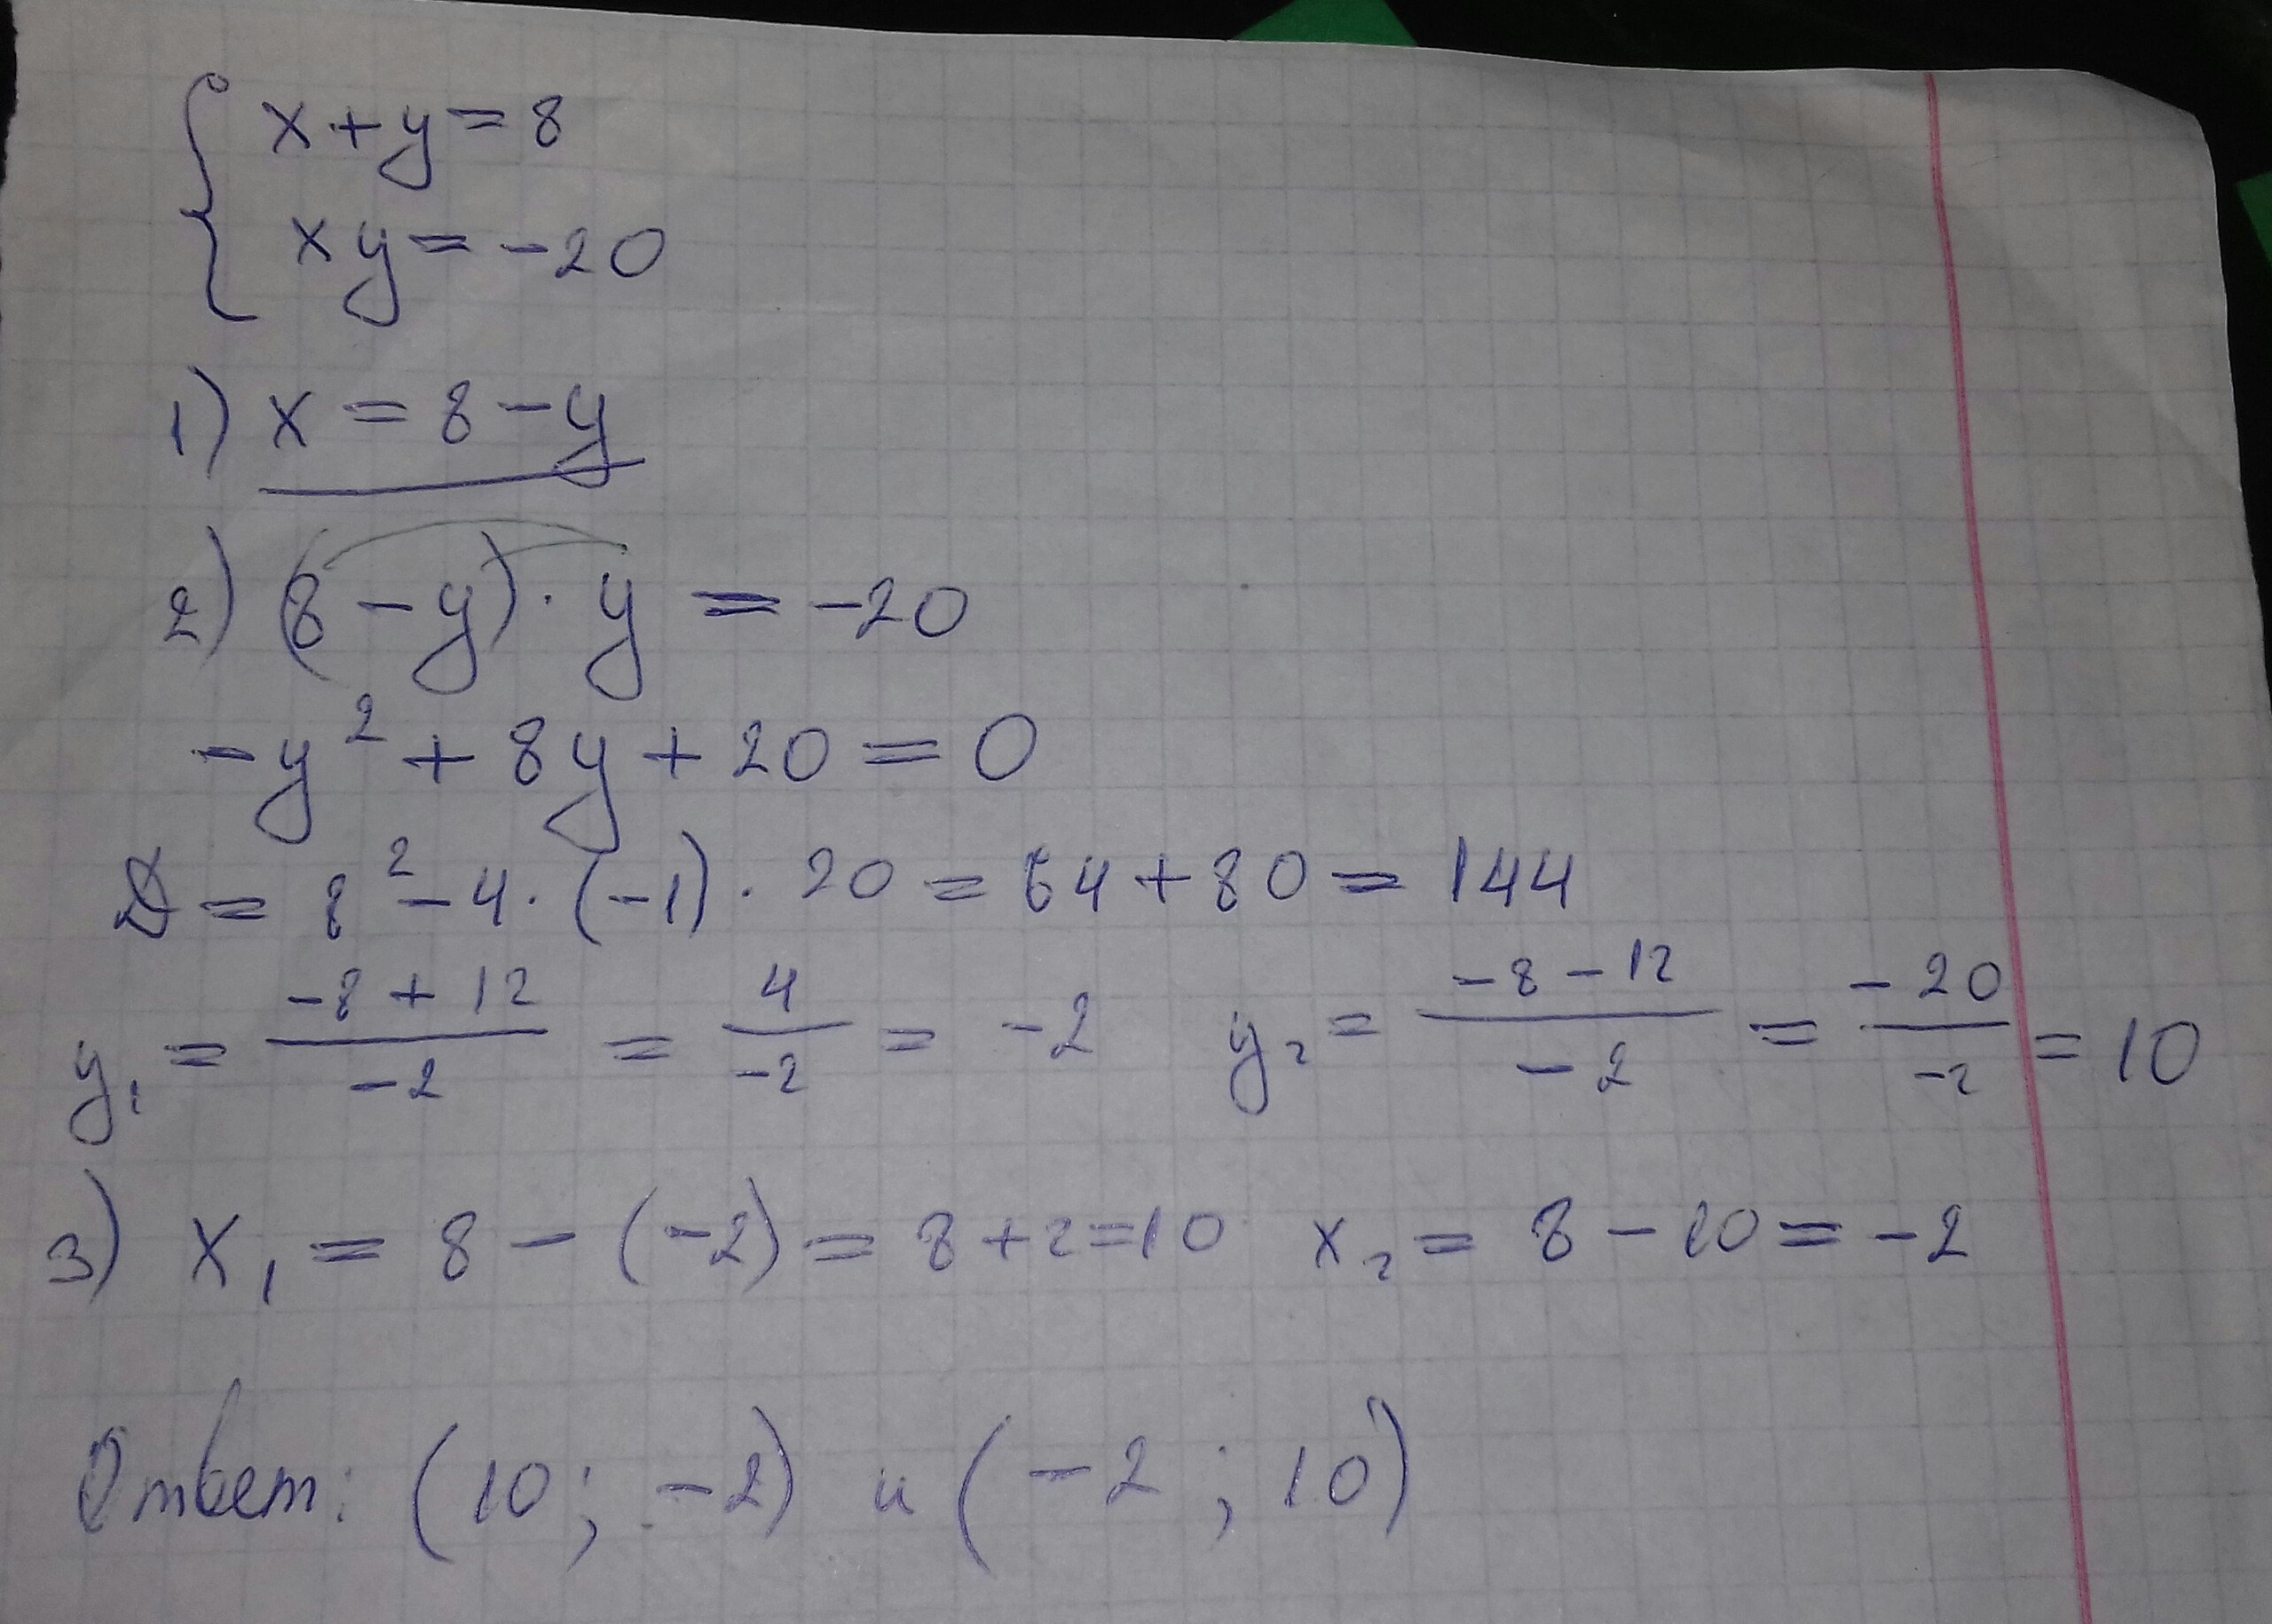 { x + y = 8
xy = -20
1) x = 8 - y
2) (8 - y) · y = -20
-y² + 8y + 20 = 0
D = 8² - 4 · (-1) · 20 = 64 + 80 = 144
y₁ = (-8 + 12)/(-2) = 4/(-2) = -2 y₂ = (-8 - 12)/(-2) = -20/(-2) = 10
3) x₁ = 8 - (-2) = 8 + 2 = 10 x₂ = 8 - 10 = -2
Ответ: (10; -2) и (-2; 10)